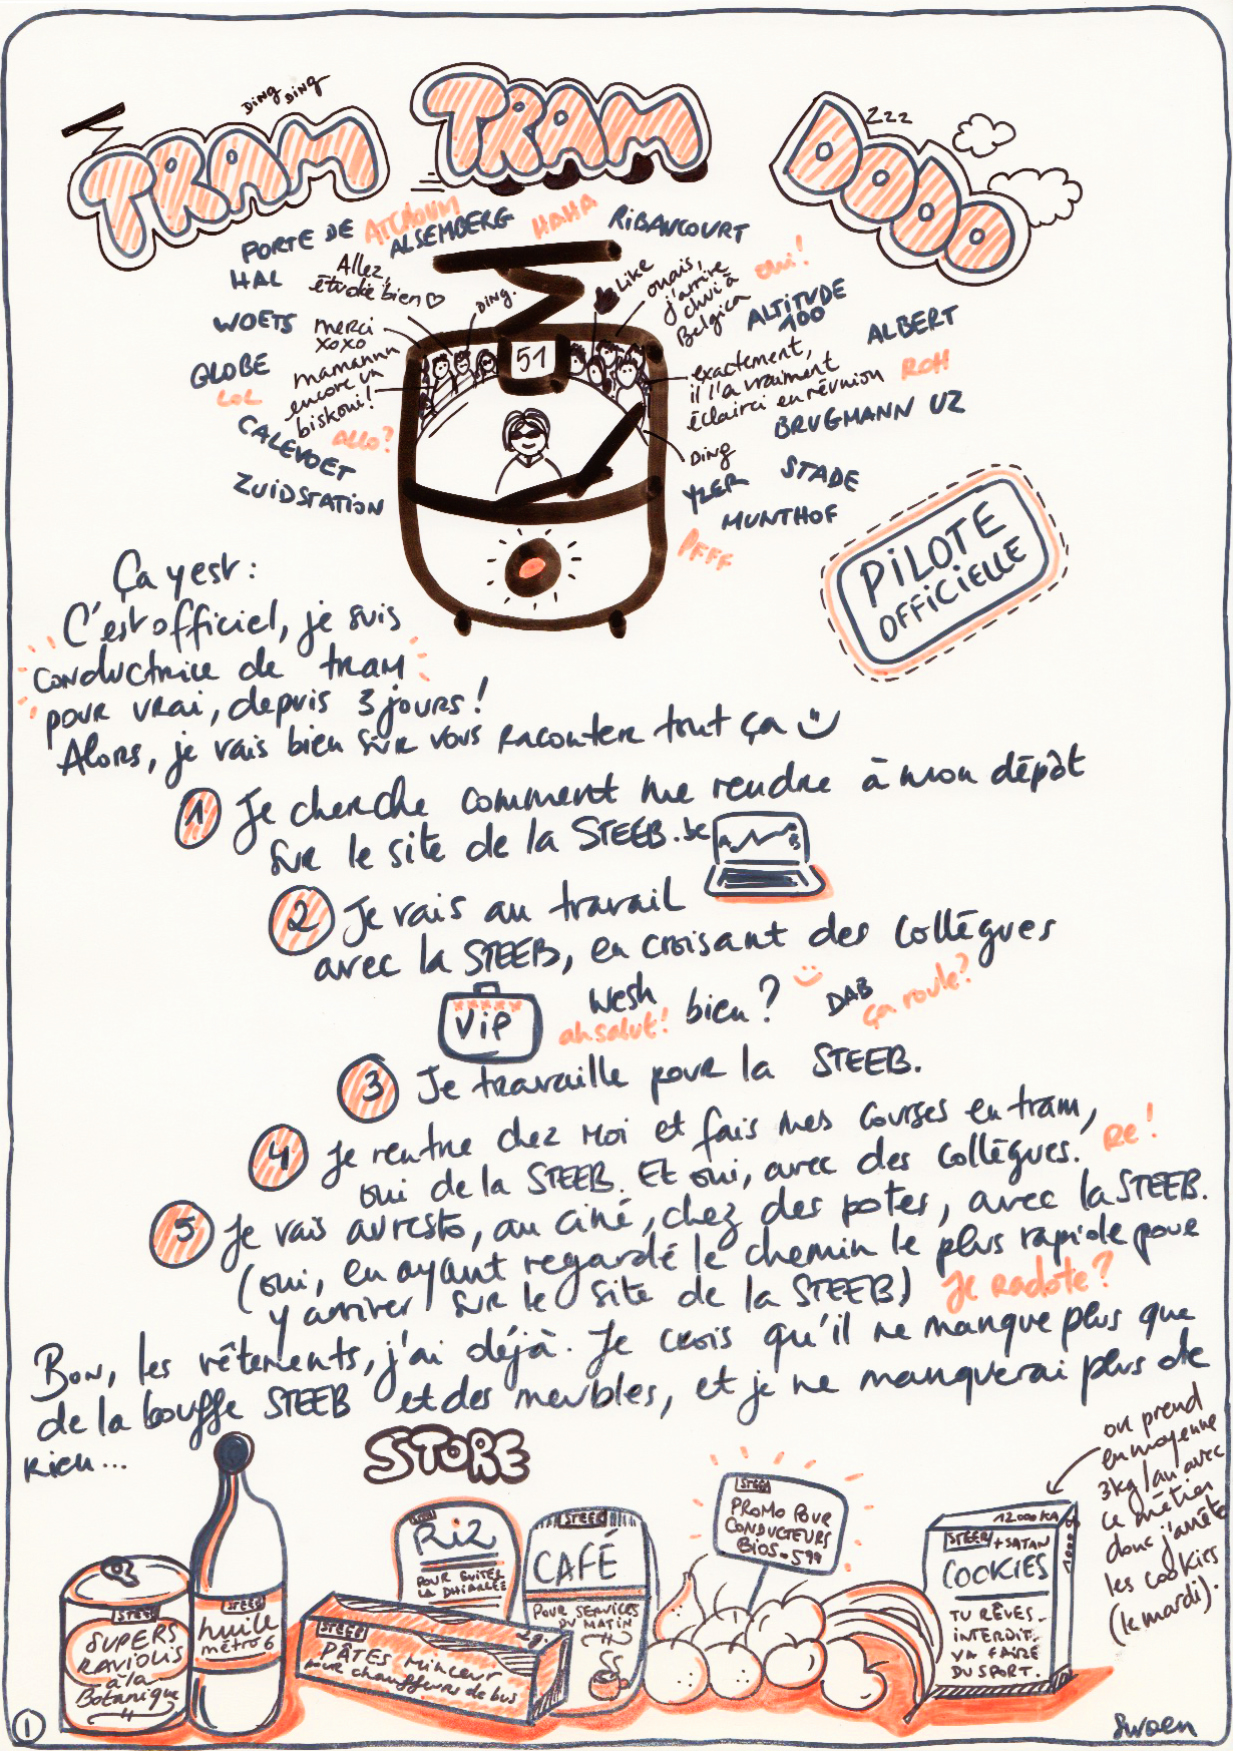 DING DING
TRAM TRAM DODO
ZZZ
PORTE DE
HAL
ATCHOUM
ALSEMBERG
HAHA
RIBAUCOURT
Allez,
étudie bien ♡
DING.
Like
ouais,
j'arrive
chui à
Belgica
oui!
ALTITUDE
100
ALBERT
WOETS
merci
xoxo
GLOBE
LOL
mamannn
encore un
biskoui!
ALLO?
CALEVOET
ZUIDSTATION
51
exactement,
il l'a vraiment
éclairci en réunion
ROH
BRUGMANN UZ
DING
STADE
YZER
MUNTHOF
PFFF
PILOTE
OFFICIELLE
Ça y est :
C'est officiel, je suis
conductrice de tram
pour vrai, depuis 3 jours !
Alors, je vais bien sûr vous raconter tout ça
1 Je cherche comment me rendre à mon dépôt
sur le site de la STEEB.be
A B
2 Je vais au travail
avec la STEEB, en croisant des collègues
VIP
Wesh
ah salut!
bien ?
DAB
ça roule?
3 Je travaille pour la STEEB.
4 Je rentre chez moi et fais mes courses en tram,
oui de la STEEB. Et oui, avec des collègues. Re !
5 Je vais au resto, au ciné, chez des potes, avec la STEEB.
(oui, en ayant regardé le chemin le plus rapide pour
y arriver sur le site de la STEEB) Je radote ?
Bon, les vêtements, j'ai déjà. Je crois qu'il ne manque plus que
de la bouffe STEEB et des meubles, et je ne manquerai plus de
rien...
STORE
on prend
en moyenne
3kg/an avec
ce métier
donc j'arrête
les cookies
(le mardi).
STEEB
SUPERS
RAVIOLIS
à la
Botanique
STEEB
huile
métro 6
Riz
POUR EVITER
LA DHIARRÉE
STEEB
PÂTES minceur
pour chauffeurs de bus
2g.
STEEB
CAFÉ
POUR SERVICES
DU MATIN
STEEB
PROMO POUR
CONDUCTEURS
BIOS -5%
12000KA
STEEB + SATAN
COOKIES
TU RÊVES.
INTERDIT.
VA FAIRE
DU SPORT.
1
Swaen